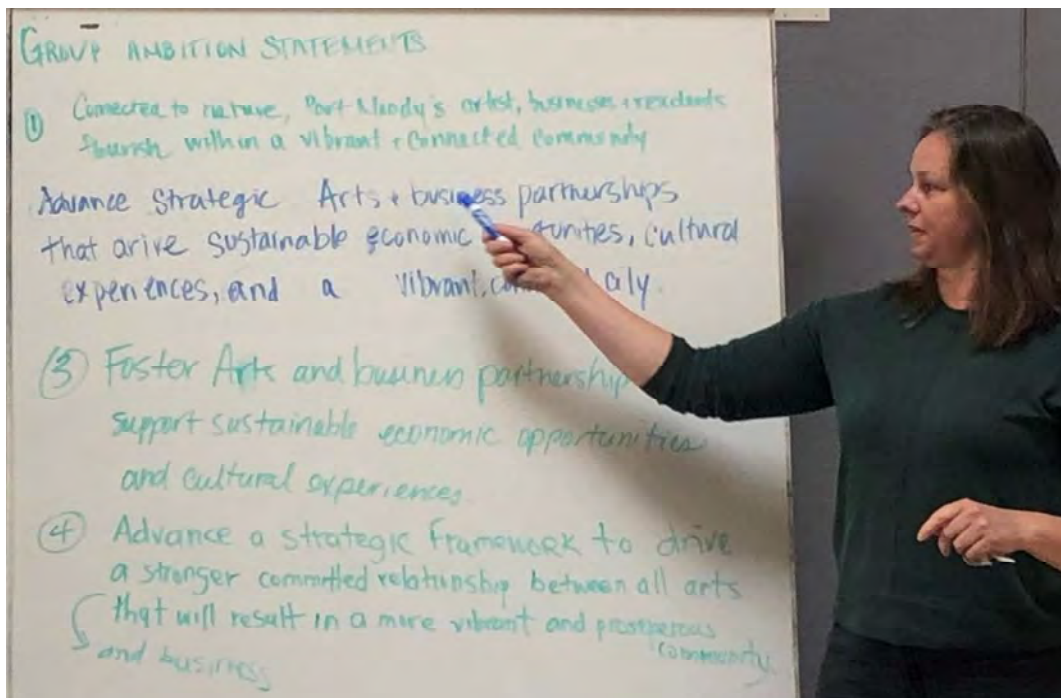 GROUP AMBITION STATEMENTS
① Connected to nature, Port Moody's artist, businesses + residents
flourish within a vibrant + connected community
Advance Strategic Arts + business partnerships
that drive sustainable economic tunities, cultural
experiences, and a vibrant,
③ Foster Arts and business partnership
support sustainable economic opportunities
and cultural experiences
④ Advance a strategic framework to drive
a stronger committed relationship between all arts
that will result in a more vibrant and prosperous
community.
and business